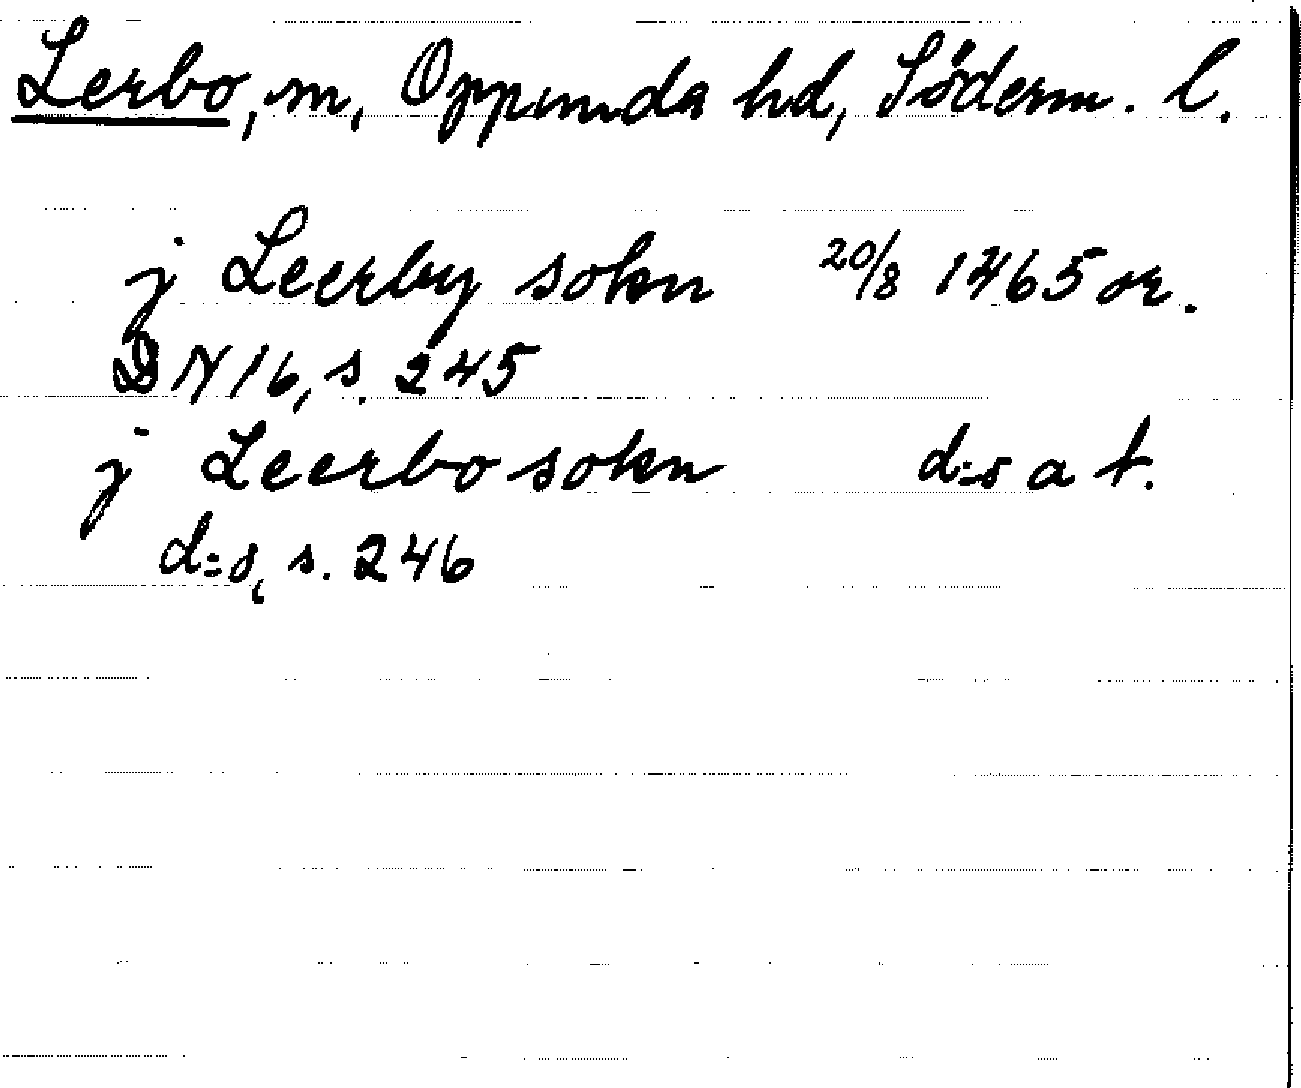 Lerbo, sn, Oppunda hd, Söderm. l.
j Leerby sokn 20/8 1465 or.
DN 16, s. 245
j Leerbo sokn d:s a t.
d:o, s. 246